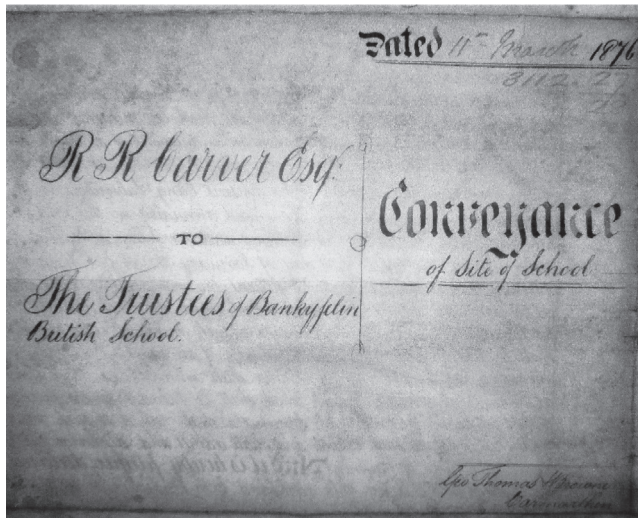 Dated 11th March 1876
3112.
R R Carver Esq.
TO
The Trusties of Bankyfelin
British School.
Conveyance
of Site of School
Geo Thomas
Carmarthen